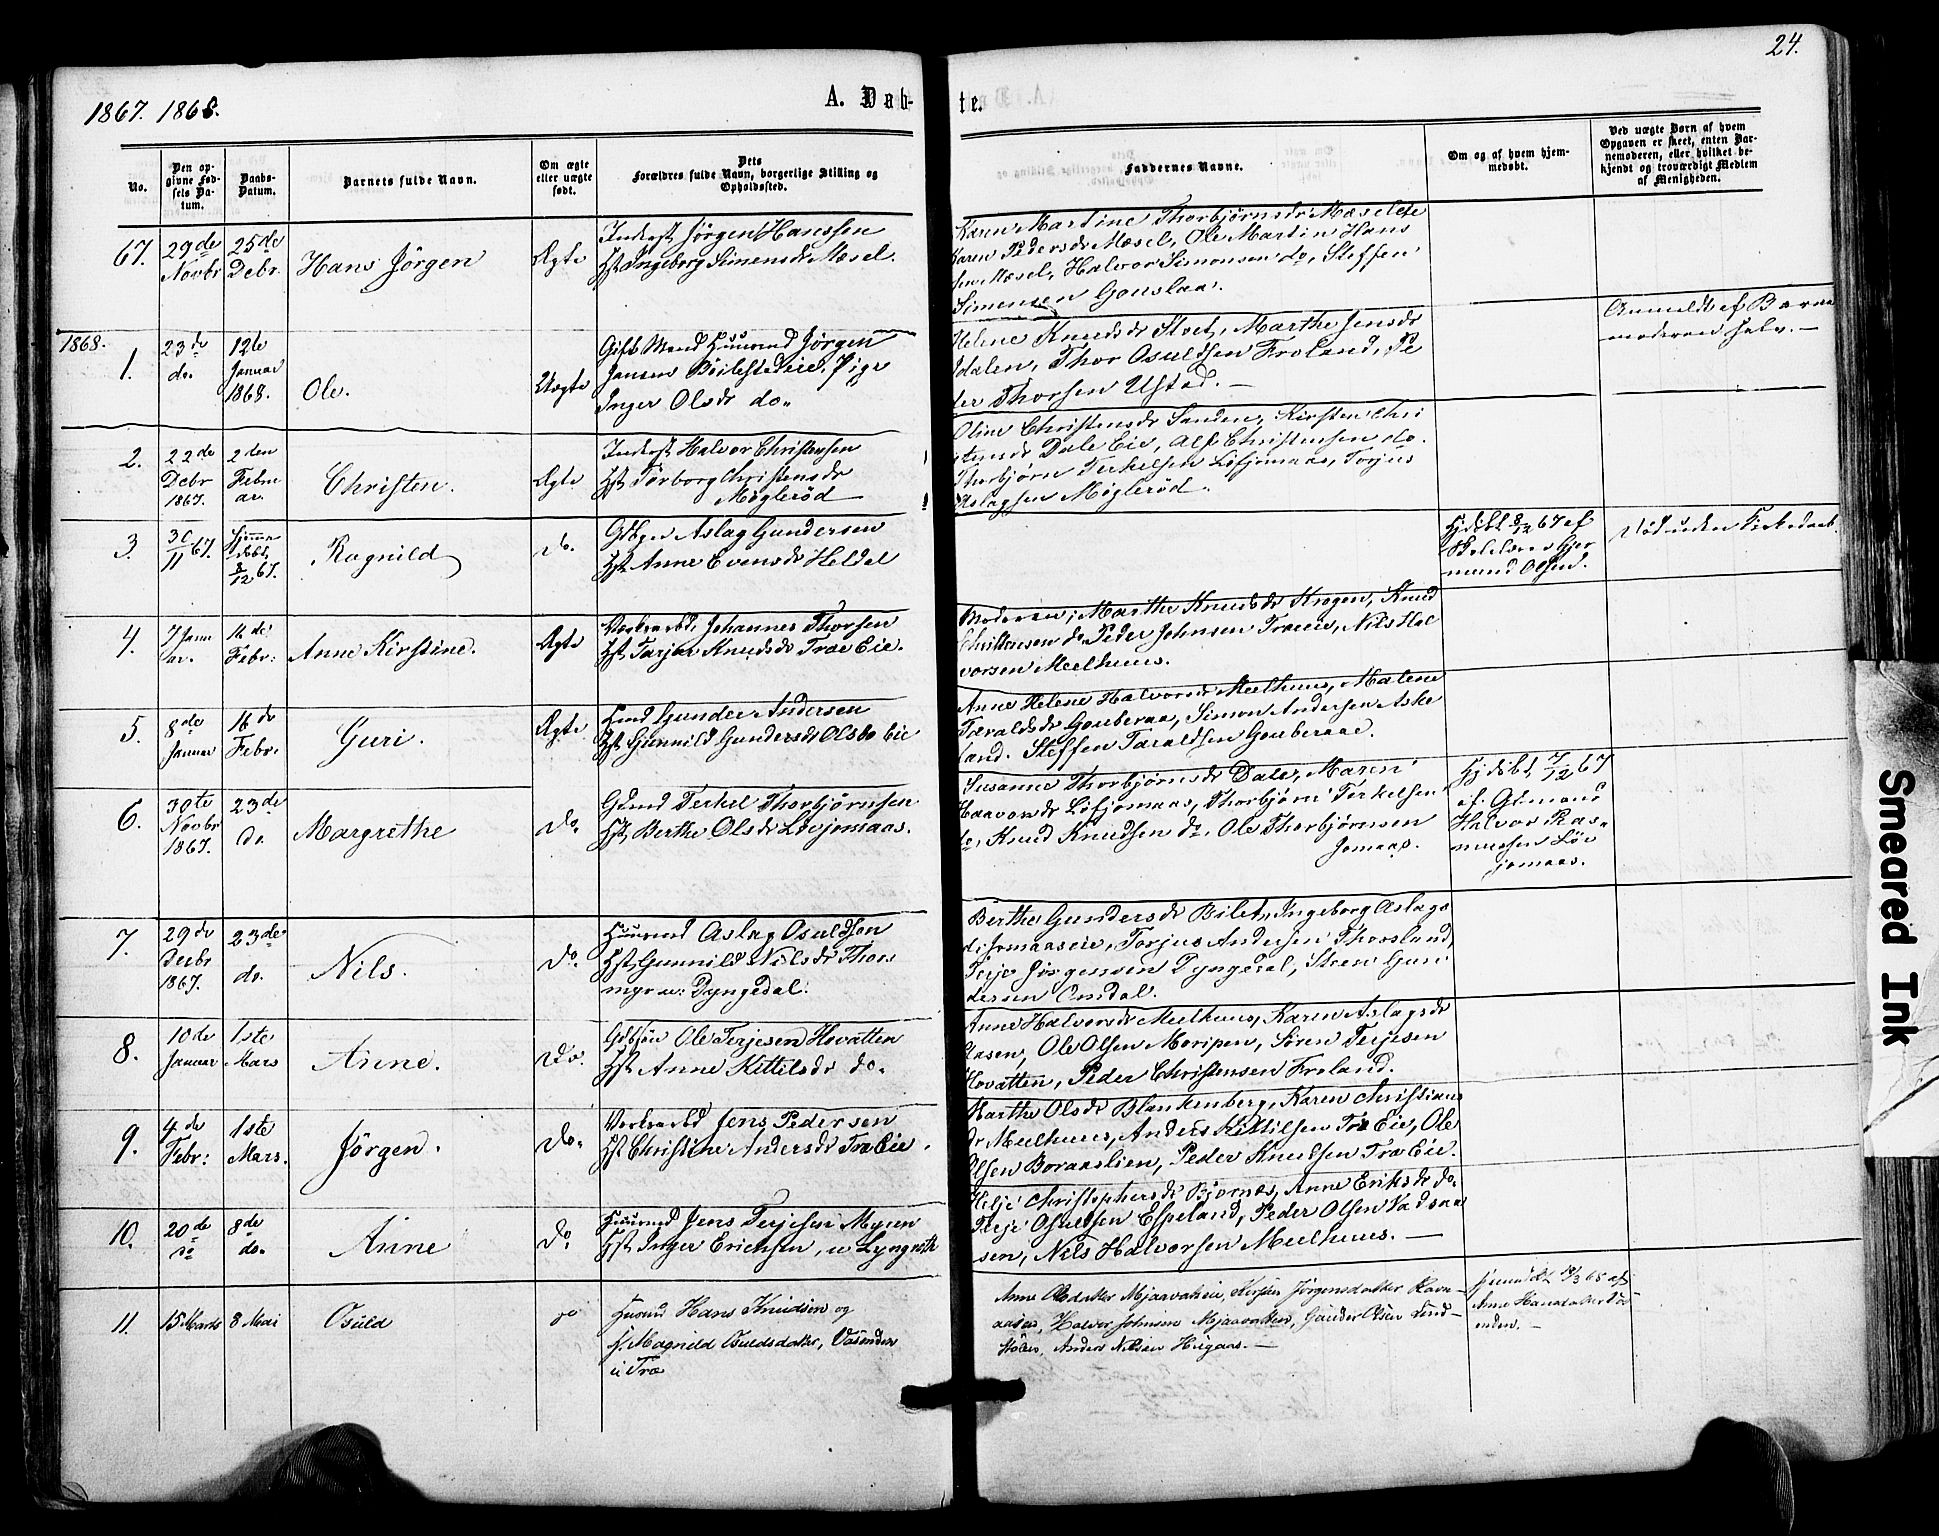 24.
1867. 1868.
A. Døb-
te.
No.
Den op-
givne Fød-
sels Da-
tum.
Daabs-
Datum.
Barnets fulde Navn.
Om ægte
eller uægte
født.
Dets
Forældres fulde Navn, borgerlige Stilling og
Opholdssted.
Faddernes Navne.
Om og af hvem hjem-
medøbt.
Ved uægte Børn af hvem
Opgaven er skeet, enten Bar-
nemoderen, eller hvilket be-
kjendt og troværdigt Medlem
af Menigheden.
67.
29de
Novbr
25de
Debr.
Hans Jörgen
Ægte
Inderst Jörgen Hanssen
Hst Ingeborg Simensdr Mæsel.
Karen Martine Thorbjørnsdr Mæselete
Karen Pedersdr Mæsel, Ole Martin Hans
sen Mæsel, Halvor Simonsen do, Steffen
Simensen Gouslaa.
1868.
1.
23de
do.
12te
Januar
1868.
Ole.
Uægte
Gift Mand Huusmd Jörgen
Jensen Böilestedeie, Pige
Inger Olsdr do.
Helene Knudsdr Stoet, Marthe Jensdr
dalen, Thor Osuldsen Froland, Pe
der Thorsen Ustad. —
Anmeldt af Barne
moderen selv. —
2.
22de
Debr
1867.
2den
Febru
ar.
Christen.
Ægte
Inderst Halvor Christensen
Hst Torborg Christensdr
Mögleröd
Oline Christensdr Sanden, Kirsten Chri
stensdr Dale Eie, Alf Christensen do.
Thorbjørn Terkelsen Löfjomaas, Torjus
Aslagsen Mögleröd.
3.
30/11 67.
Hjemme
døbt
8/12 67.
Ragnild
do.
Gdbgr Aslag Gundersen
Hst Anne Evensdr Heldel
Hjdøbt 8/12 67 af
Skolelærer Gjer
mund Olsen.
Död uden Kirkedaab.
4.
7 Janu
ar.
16de
Febr:
Anne Kirstine.
Ægte
Værksarbd. Johannes Thorsen
Hst Tarjer Knudsdr Træ Eie.
Moderen, Marthe Knudsdr Krogen, Knud
Christensen do Peder Johnsen Træeie, Nils Hal
vorsen Meelhuus.
5.
8de
Januar
16de
Febr.
Guri.
Ægte
Hmd Gunder Andersen
Hst Gunnild Gundersdr Olsbo Eie
Anne Helene Halvorsdr Meelhuus, Malene
Taraldsdr Gouberaa, Simon Andersen Aske
land. Steffen Taraldsen Gouberaae.
6.
30te
Novbr
1867.
23de
do.
Margrethe
do
Gbmd Terkel Thorbjørnsen
Hst Berthe Olsdr Lövjomaas.
Susanne Thorbjørnsdr Dale, Maren
Haavorsdr Löfjomaas, Thorbjørn Terkelsen
do, Knud Knudsen do. Ole Thorbjørnsen
Jomaas.
Hjdöbt 7/12 67
af Gbmand
Halvor Ras-
mussen Löv
jomaas.
7.
29de
Decbr
1867.
23de
do.
Nils.
do.
Huusmd Aslag Osuldsen
Hst Gunnild Nilsdr Thors
myr u: Dyngedal.
Berthe Gundersdr Bilet, Ingeborg Aslags
dr Jomaaseie, Torjus Andersen Thorsland,
Terje Jörgensen Dyngedal, Steen Gun
dersen Omdal.
8.
10de
Januar
1ste
Mars
Anne.
do.
Gdbsön Ole Terjesen Hovatten
Hst Anne Kittilsdr do.
Anne Halvorsdr Meelhuus, Karen Aslagsdr
Aasen, Ole Olsen Moripen, Sören Terjesen
Hovatten, Peder Christensen Froland.
9.
4de
Febr:
1ste
Mars.
Jörgen.
do.
Værksarbd Jens Pedersen
Hst Christine Andersdr Træ Eie.
Marthe Olsdr Blankenberg, Karen Christians
dr Meelhuus, Anders Kittilsen Træ Eie, Ole
Olsen Boraaslien, Peder Knudsen Træ Eie.
10.
20de
do
8de
do.
Anne
do.
Huusmd Jens Terjesen Myren
Hst Inger Erichsen, u Lyngroth
Hilje Christophersdr Bjornæs, Anne Eriksdr do.
Terje Osuldsen Espeland, Peder Olsen Vadsaa
sen, Nils Halvorsen Meelhuus. —
11.
15 Marts
8 Mai
Osuld
do
Husmd Hans Knudsen og
h. Magnild Osuldsdatter, Vasenden
u Træ
Anne Olsdatter Mjaavatneie, Kirsten Jörgensdatter Ravn-
aasen, Halvor Johnsen Mjaavatten, Gunder Olsen Lind-
stöl, Anders Nilsen Heigaas. —
Hjemmdöbt 18/3 68 af
Anne Hansdatter Vas-
enden. —
Smeared Ink